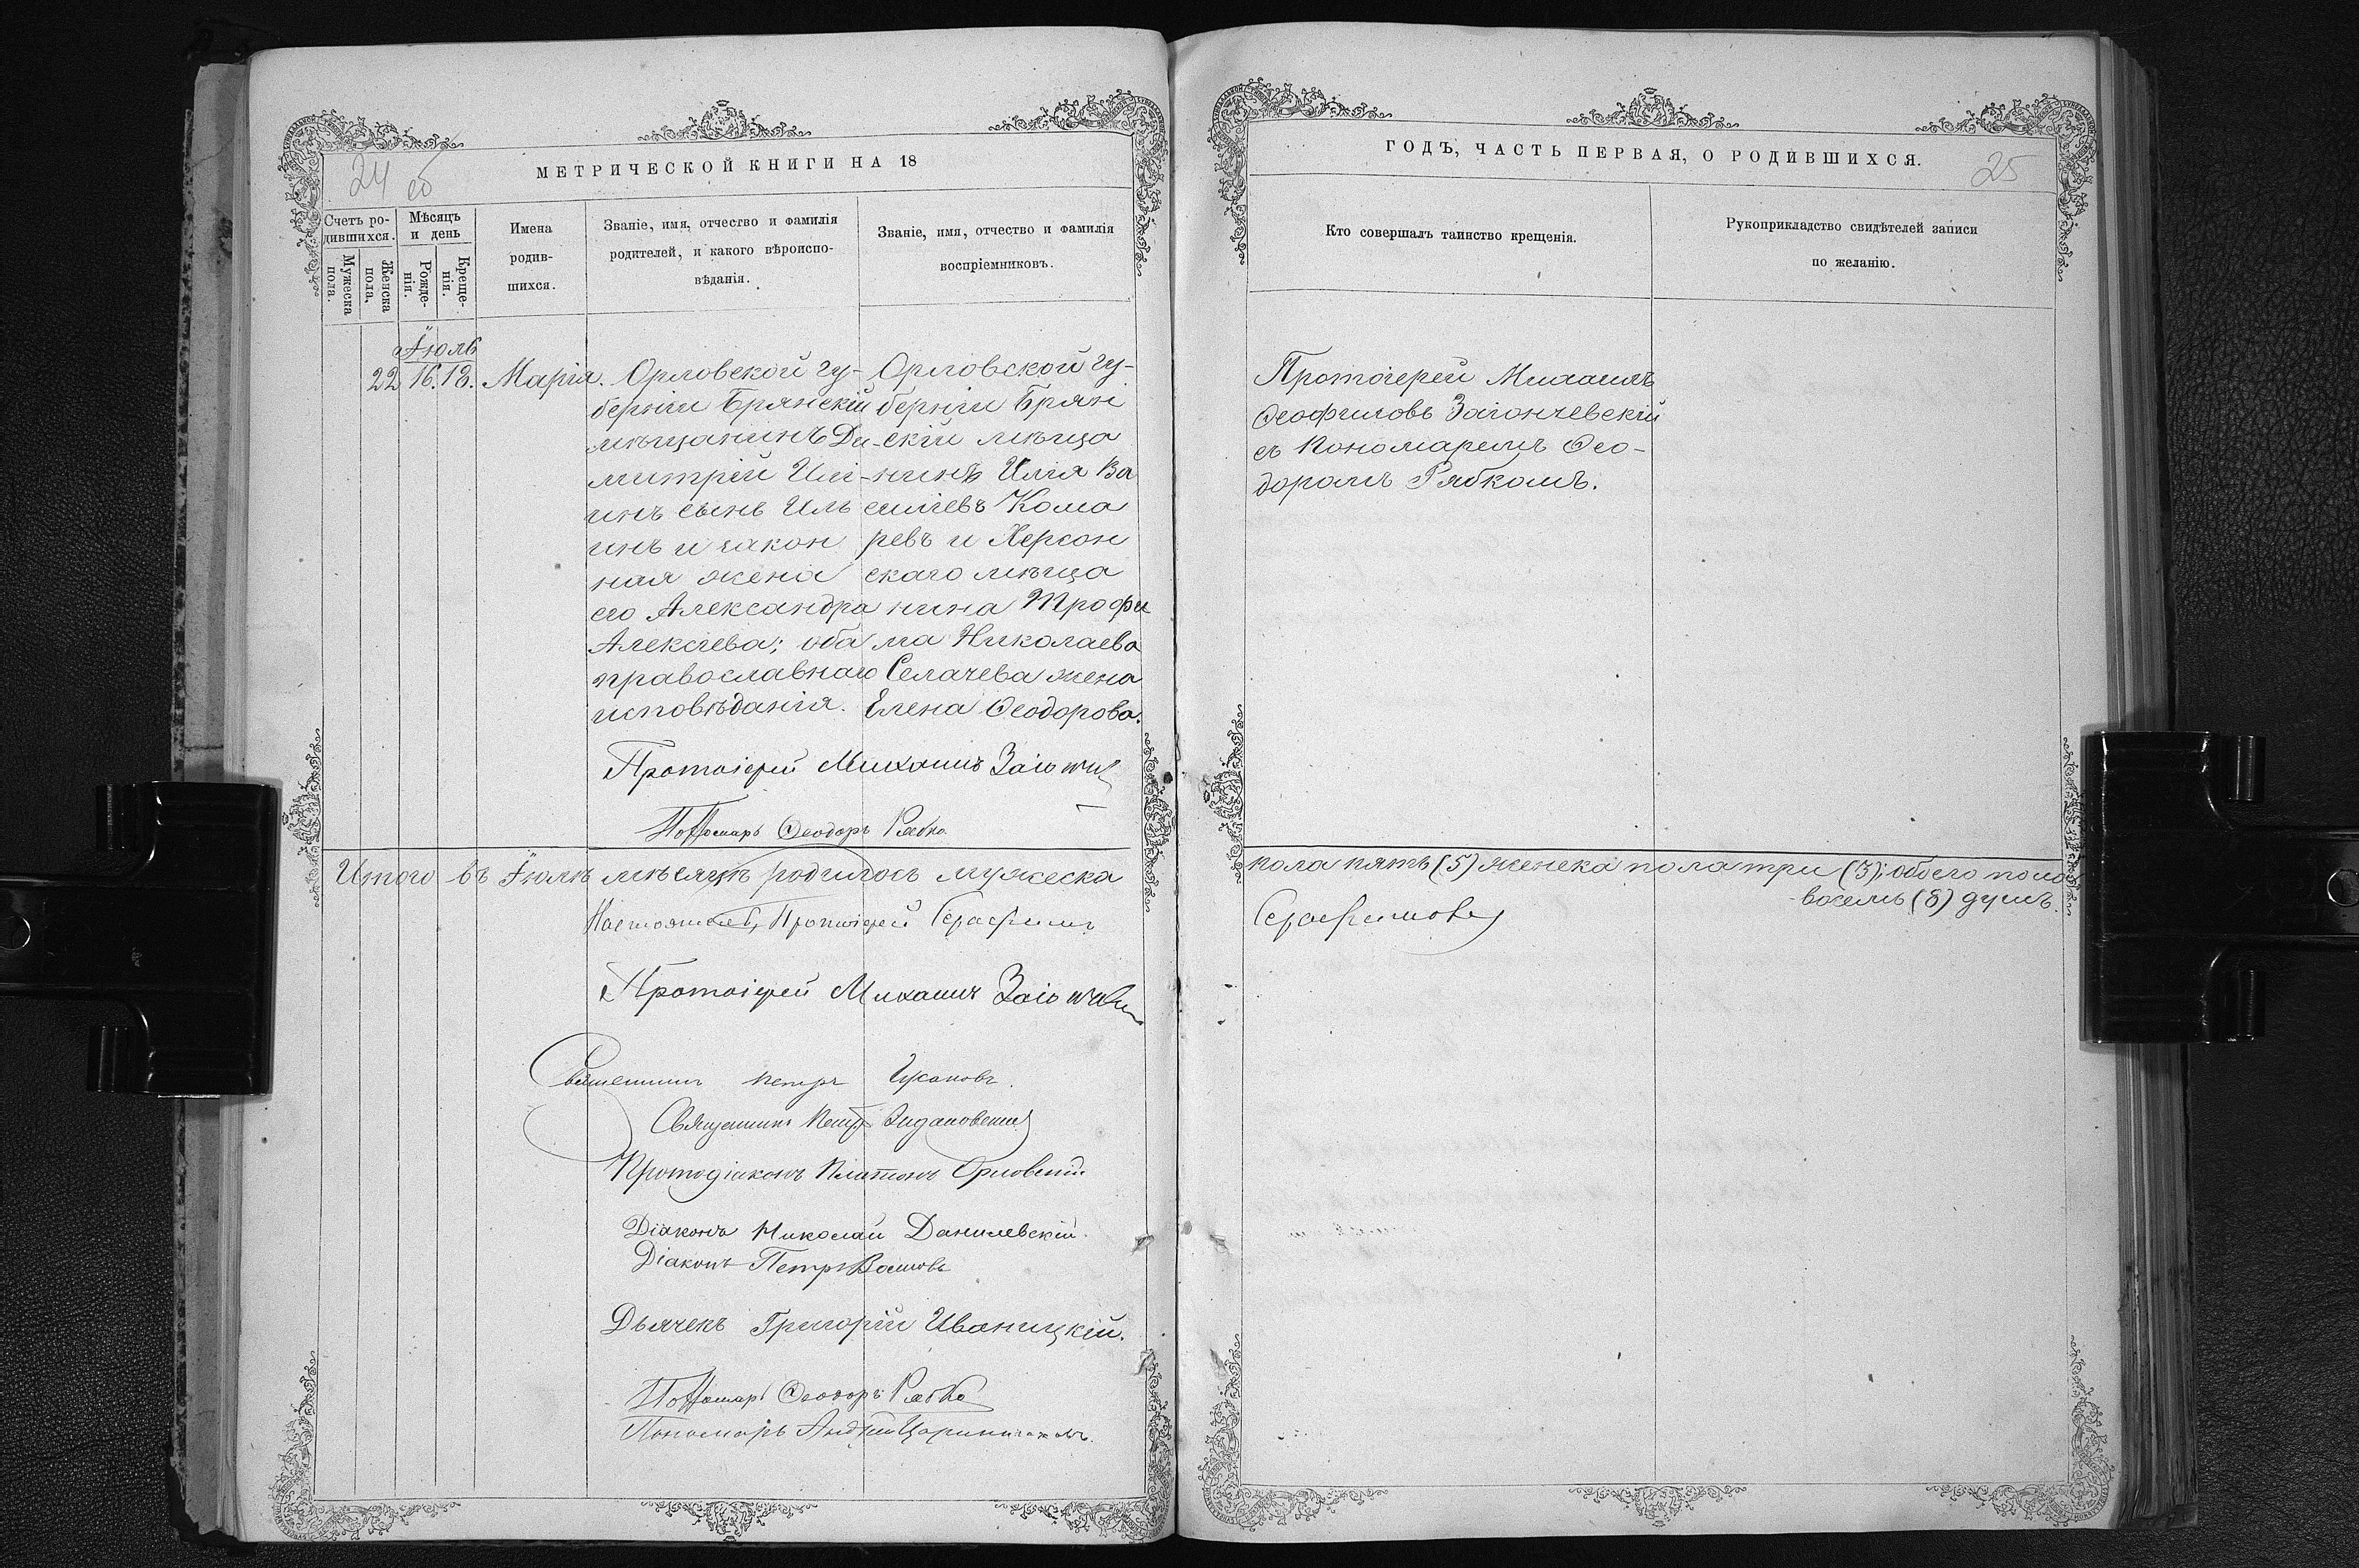 24 об
МЕТРИЧЕСКОЙ КНИГИ НА 18
Счетъ ро-
дившихся.
Мужеска
пола.
Женска
пола.
Мѣсяцъ
и день
Рожде-
нія.
Креще-
нія.
Имена
родив-
шихся.
Званіе, имя, отчество и фамилія
родителей, и какого вѣроиспо-
вѣданія.
Званіе, имя, отчество и фамилія
воспріемниковъ.
Іюль
22 16. 18. Марія.
Орловской гу-
берніи Брянскій
мѣщанинъ Ди-
митрій Иль-
инъ сынъ Иль
инъ и закон
ная жена
его Александра
Алексіева; оба
православнаго
исповѣданія.
Орловской гу-
берніи Брян
скій мѣща
нинъ Илія Ва
силіевъ Кома
ревъ и Херсон
скаго мѣща
нина Трофи
ма Николаева
Селачева жена
Елена Ѳеодорова.
Протоіерей Михаилъ
Пономарь Ѳеодоръ Рябко
Итого въ Іюлѣ мѣсяцѣ родилось мужеска
Настоятель, Протоіерей Серафимъ
Протоіерей Михаилъ
Священникъ Петръ
Священникъ Петръ
Протодіаконъ Платонъ Орловскій
Діаконъ Николай Данилевскій.
Діаконъ Петръ
Дьячекъ Григорій Иваницкій.
Пономарь Ѳеодоръ Рябко
Пономарь Андрей
ГОДЪ, ЧАСТЬ ПЕРВАЯ, О РОДИВШИХСЯ.
25
Кто совершалъ таинство крещенія.
Рукоприкладство свидѣтелей записи
по желанію.
Протоіерей Михаилъ
Ѳеофиловъ Загончевскій
съ Пономаремъ Ѳео-
доромъ Рябкомъ.
пола пять (5) женска пола три (3); обоего пола
восемь (8) душъ.
Серафимовъ